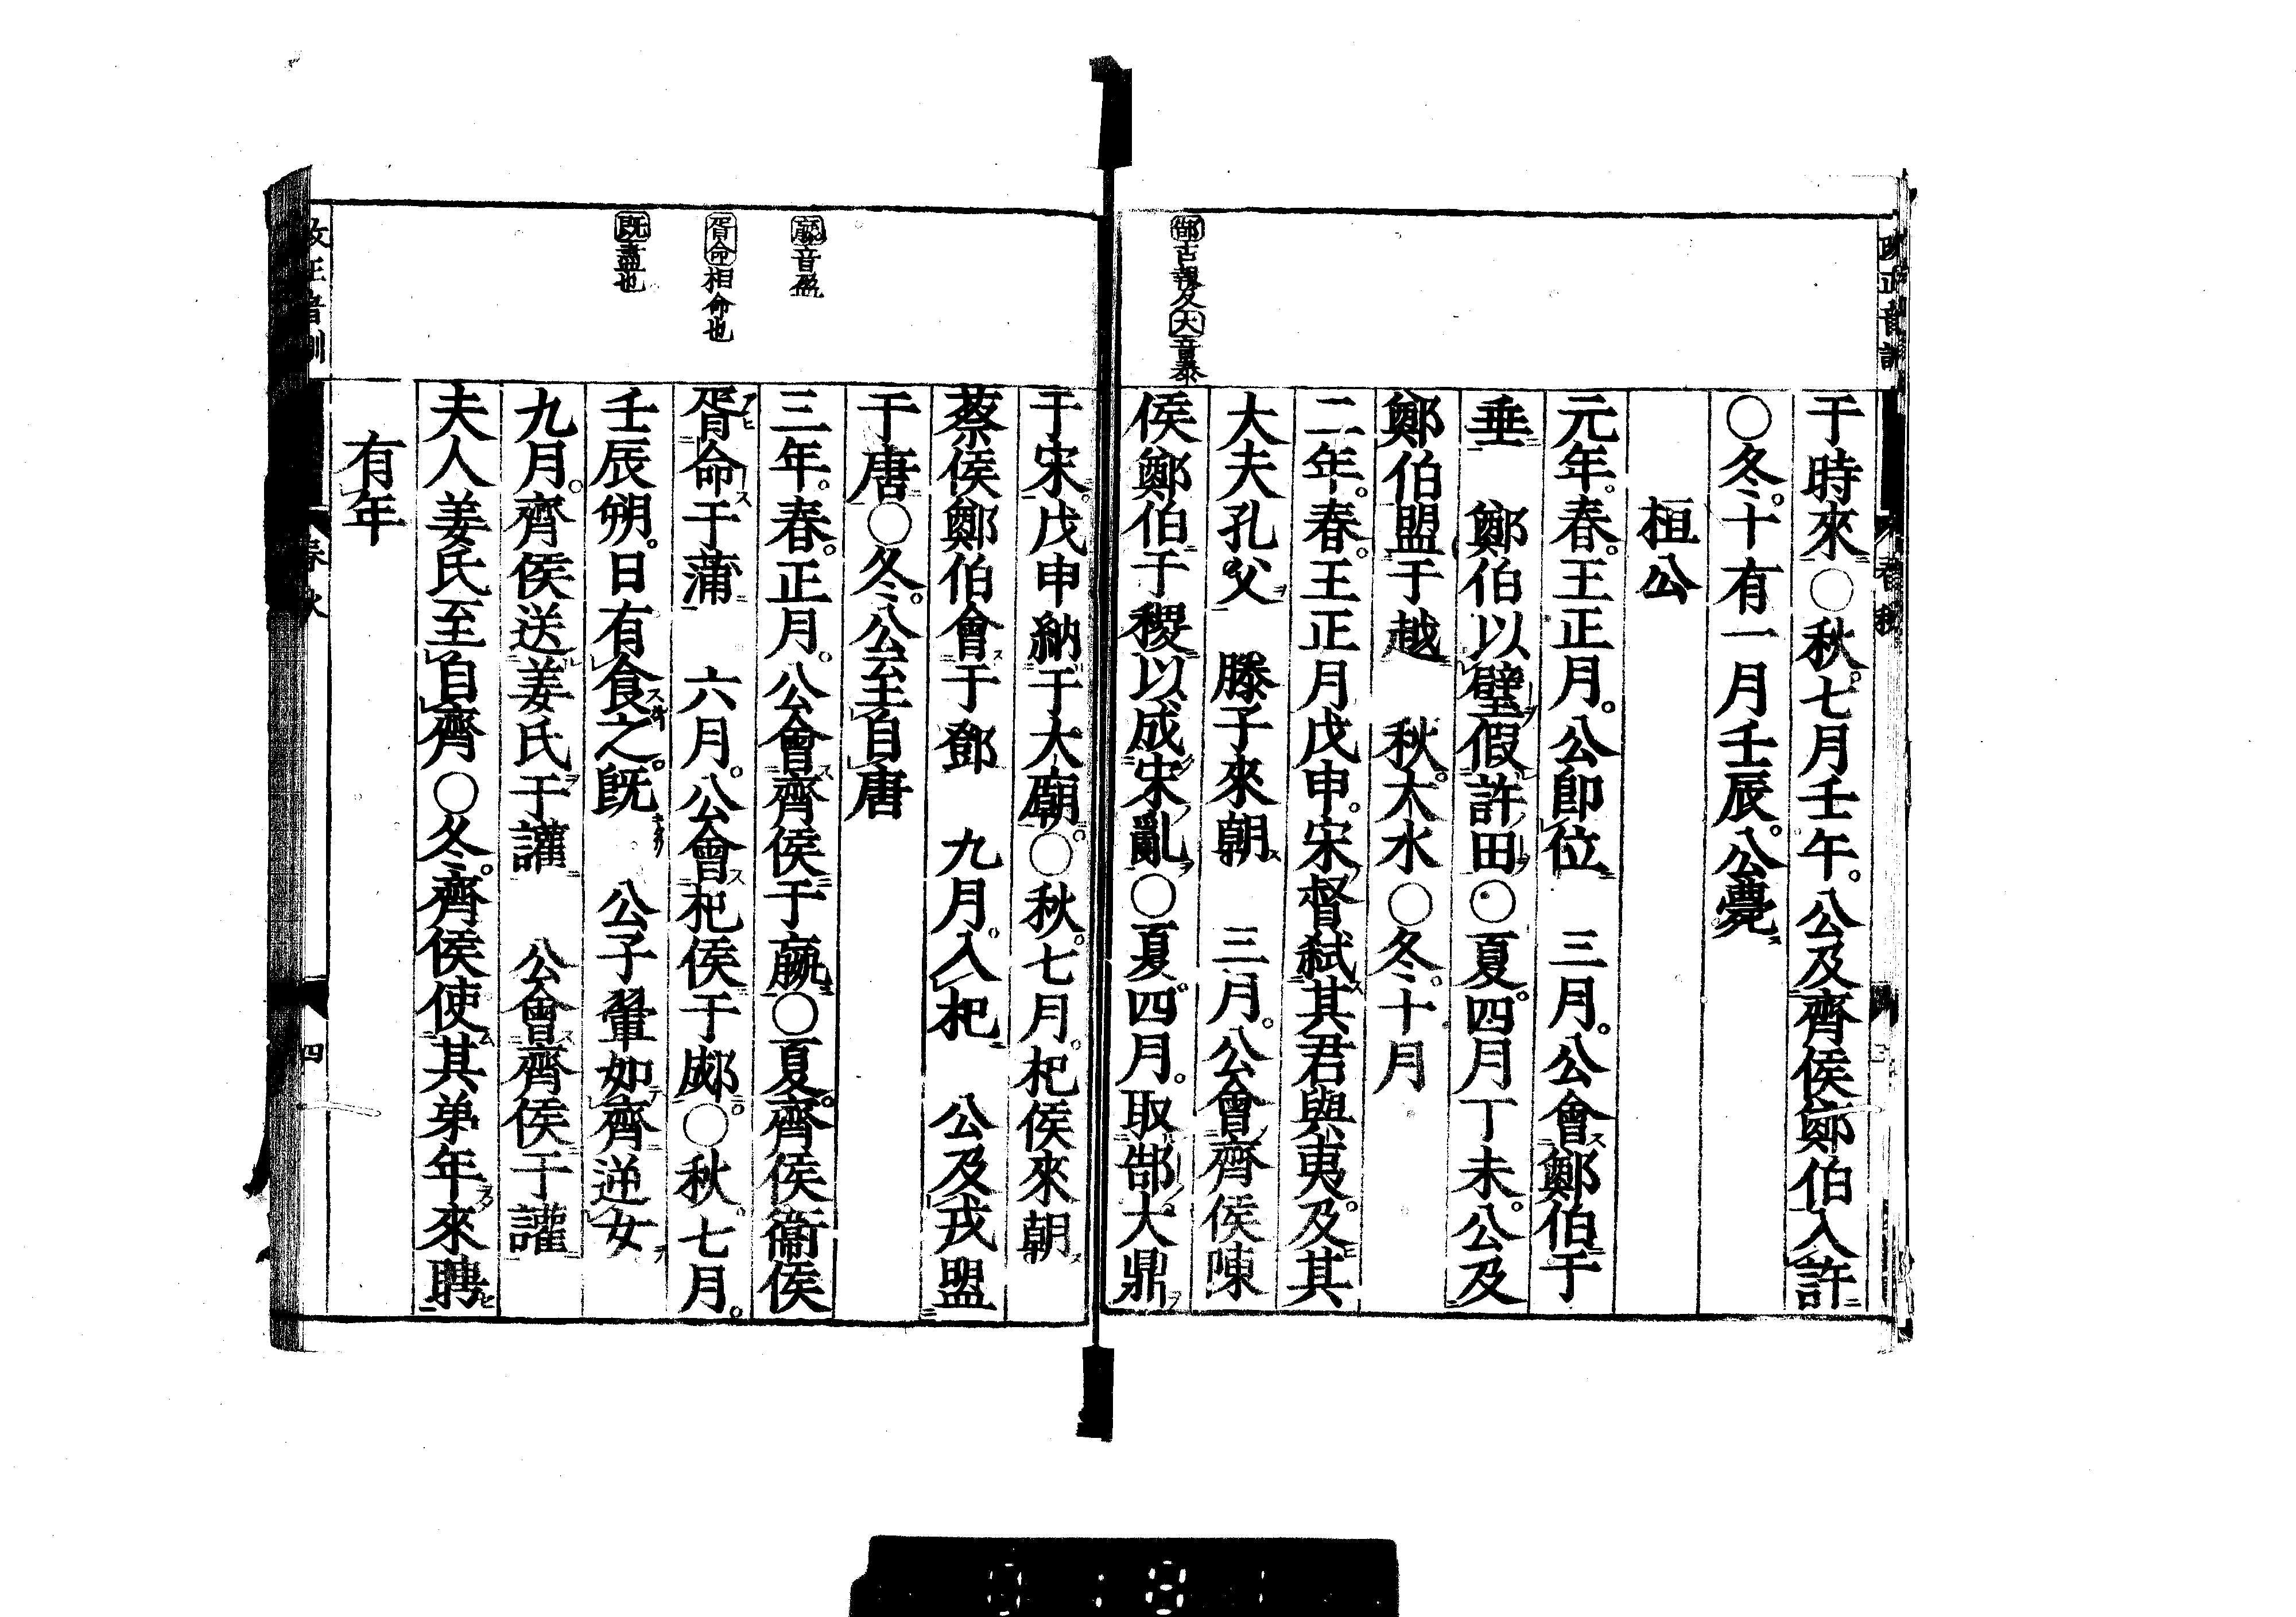 郜古報反大音泰
于時來○秋七月壬午公及齊侯鄭伯入許
○冬十有一月壬辰公薨
桓公
元年春王正月公卽位　三月公會鄭伯于
垂　鄭伯以璧假許田○夏四月丁未公及
鄭伯盟于越　秋大水○冬十月
二年春王正月戊申宋督弑其君與夷及其
大夫孔父　滕子來朝　三月公會齊侯陳
侯鄭伯于稷以成宋亂○夏四月取郜大鼎
嬴音盈
胥命相命也
既盡也
于宋戊申納于大廟○秋七月杞侯來朝
蔡侯鄭伯會于鄧　九月入杞　公及戎盟
于唐○冬公至自唐
三年春正月公會齊侯于嬴○夏齊侯衞侯
胥命于蒲　六月公會杞侯于郕○秋七月
壬辰朔日有食之既　公子翬如齊逆女
九月齊侯送姜氏于讙　公會齊侯于讙
夫人姜氏至自齊○冬齊侯使其弟年來聘
有年
春秋
四